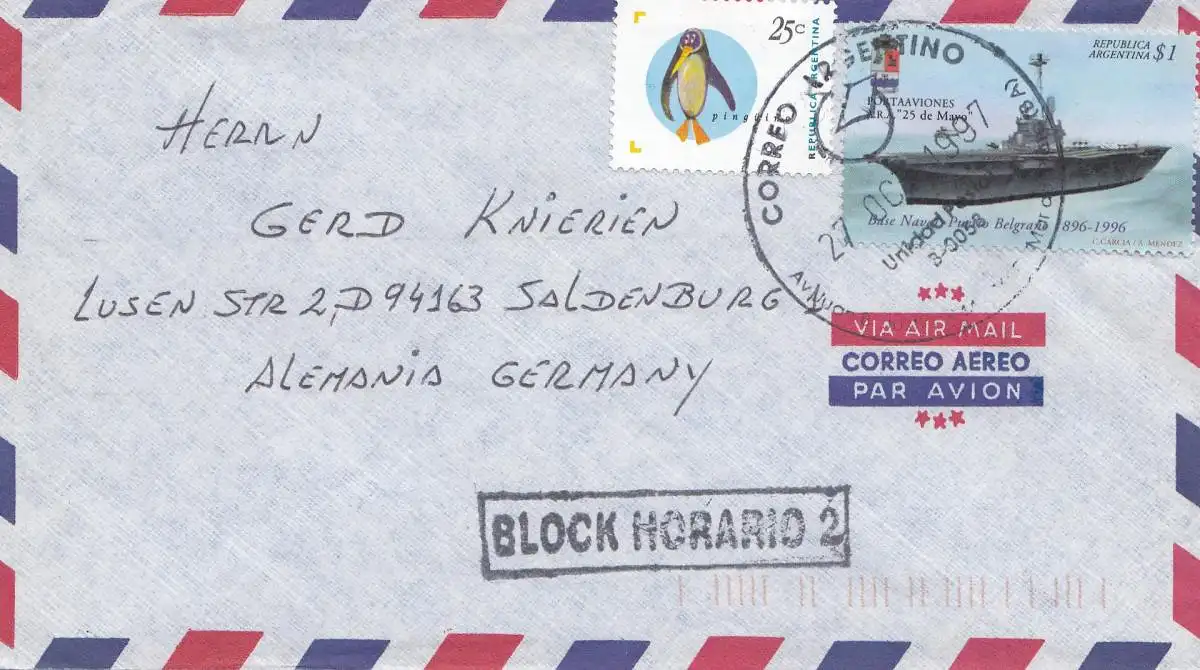 25c
pingüino
REPUBLICA ARGENTINA
REPUBLICA
ARGENTINA $1
PORTAAVIONES
A.R.A. "25 de Mayo"
Base Naval Puerto Belgrano 1896-1996
C. GARCIA / A. MENDEZ
CORREO ARGENTINO
1997
HERRN
GERD KNIERIEN
LUSEN STR 2, D94163 SALDENBURG
ALEMANIA GERMANY
VIA AIR MAIL
CORREO AEREO
PAR AVION
BLOCK HORARIO 2